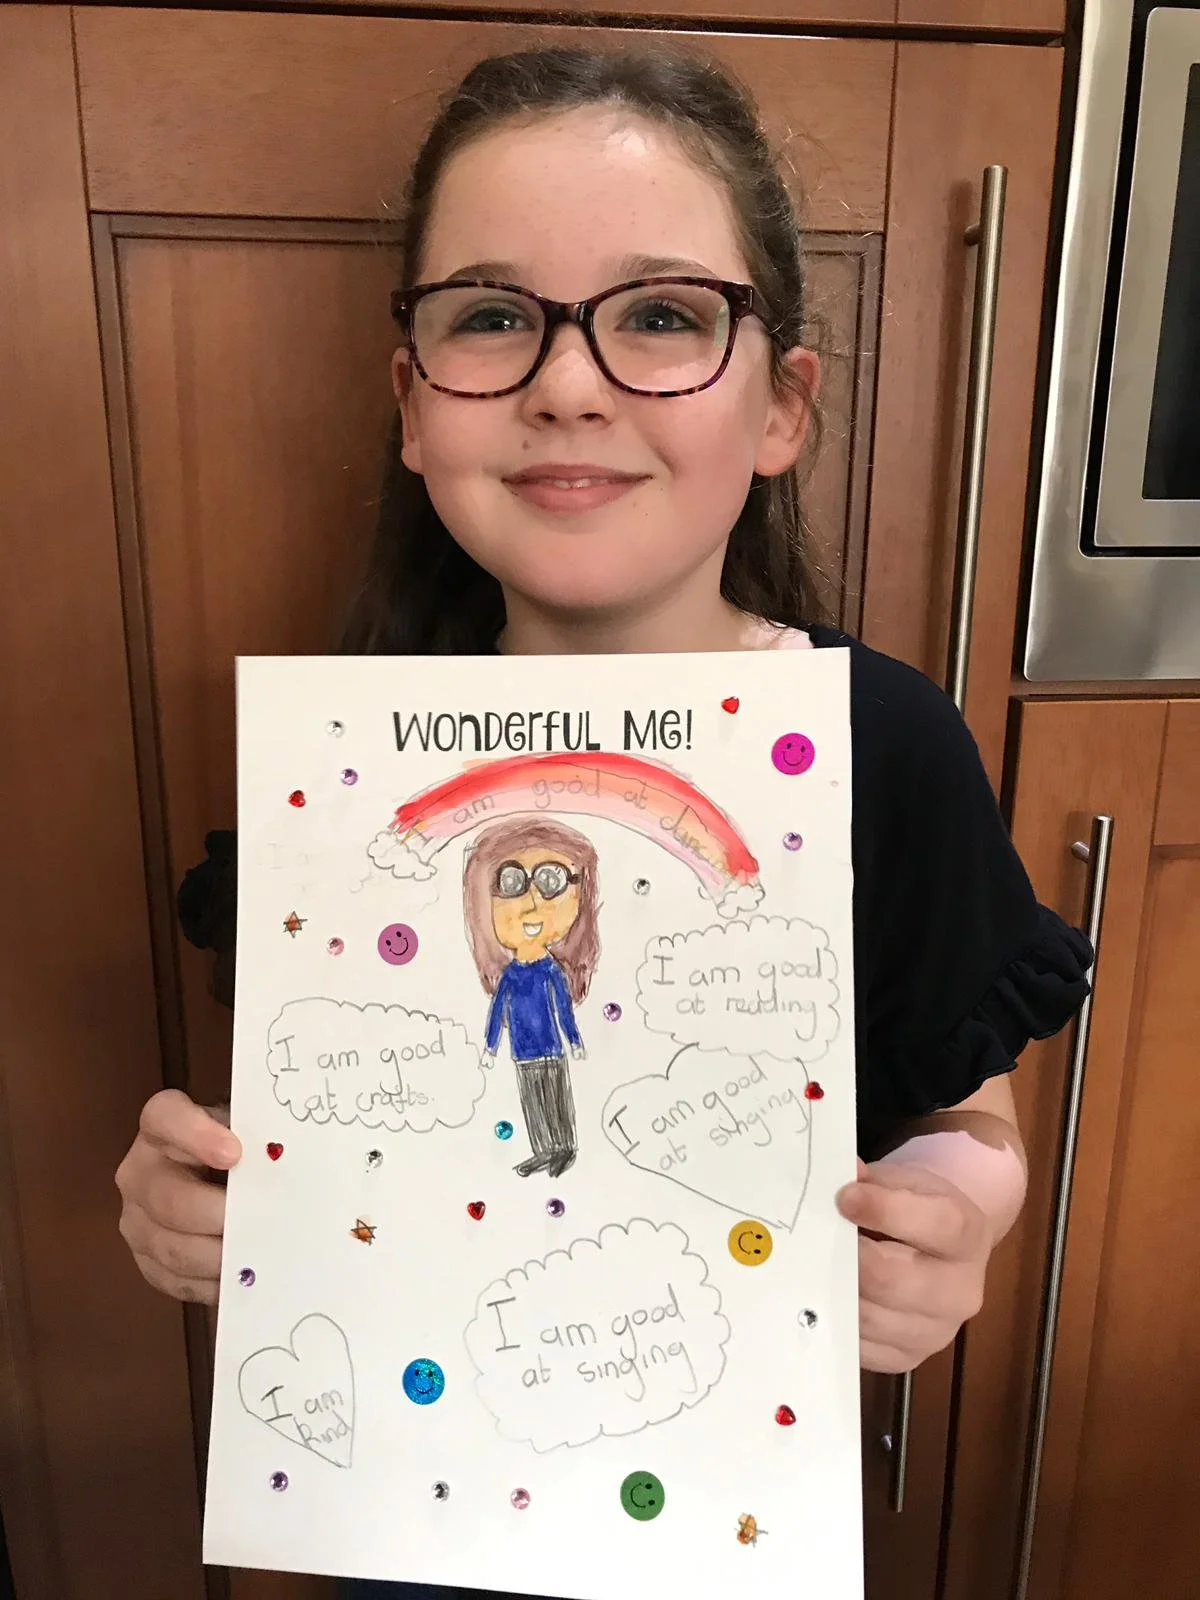 WONDERFUL ME!
I am good at dancing
I am good
at reading
I am good
at crafts.
I am good
at singing
I am good
at singing
I am
kind